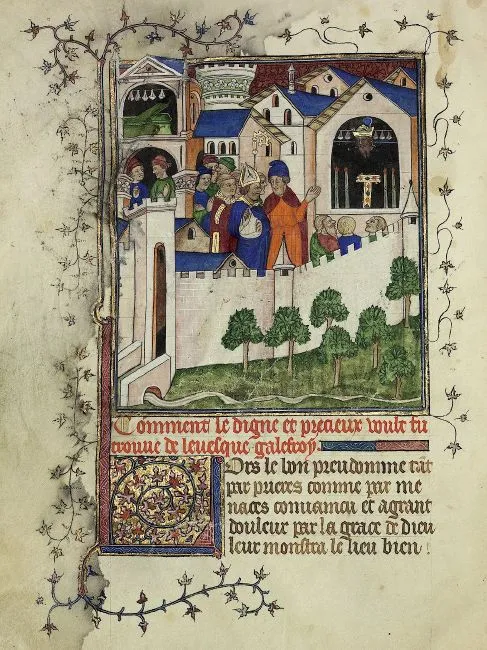 Comment le digne et precieux voult fu
trouue de leuesque galefroy.
Lors le bon preudomme tāt
par prieres comme par me
naces conuaincu et a grant
douleur par la grace de dieu
leur monstra le lieu bien :